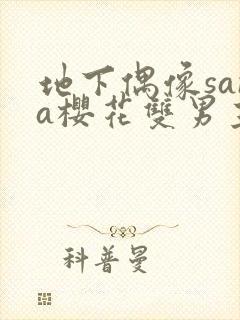 地下偶像sa
a櫻花雙男
科普曼